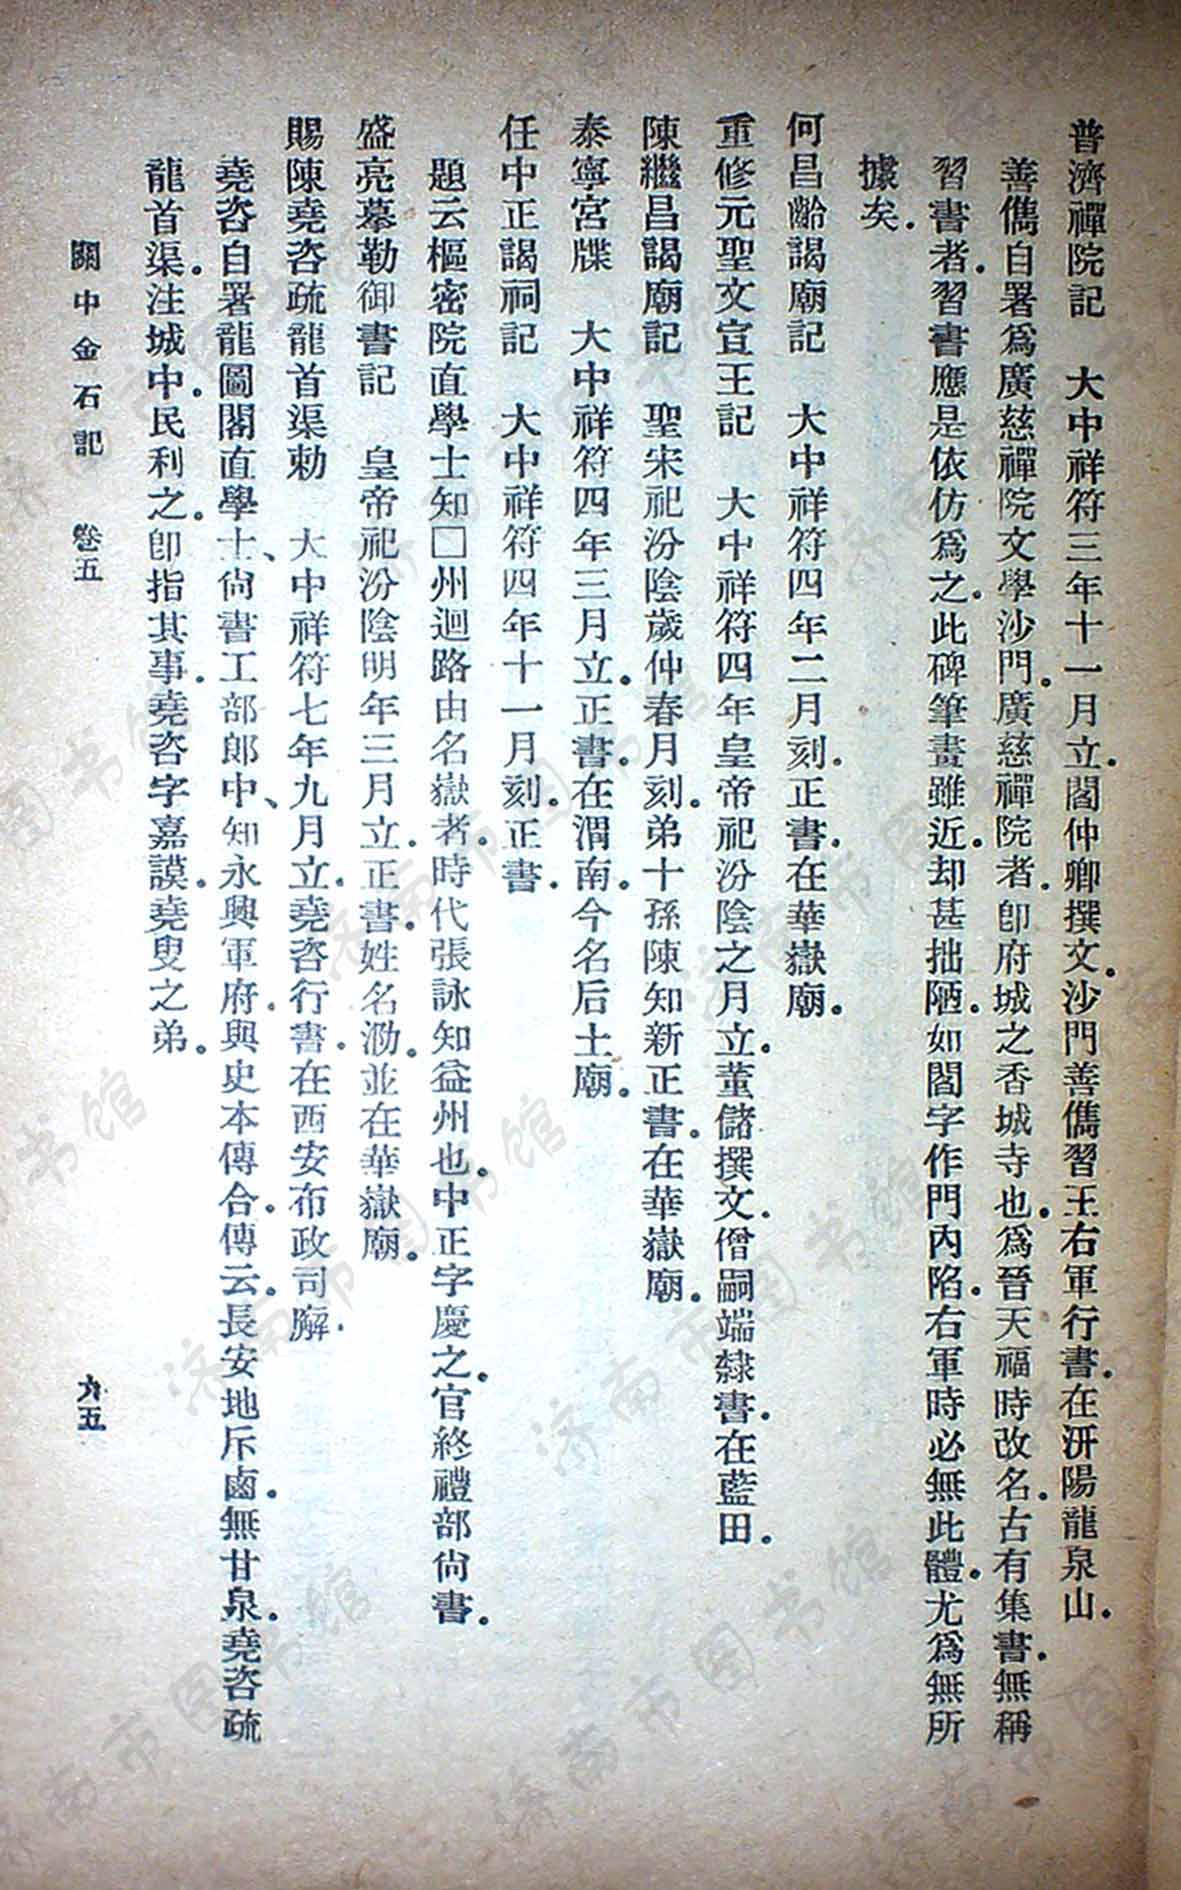 普濟禪院記　大中祥符三年十一月立。閻仲卿撰文。沙門善儁習王右軍行書。在汧陽龍泉山。
善儁自署爲廣慈禪院文學沙門。廣慈禪院者。卽府城之香城寺也。爲晉天福時改名。古有集書。無稱
習書者。習書應是依仿爲之。此碑筆畫雖近。却甚拙陋。如閻字作門內陷。右軍時必無此體。尤爲無所
據矣。
何昌齡謁廟記　大中祥符四年二月刻。正書。在華嶽廟。
重修元聖文宣王記　大中祥符四年皇帝祀汾陰之月立。董儲撰文。僧嗣端隸書。在藍田。
陳繼昌謁廟記　聖宋祀汾陰歲仲春月刻。弟十孫陳知新正書。在華嶽廟。
泰寧宮牒　大中祥符四年三月立。正書。在渭南。今名后土廟。
任中正謁祠記　大中祥符四年十一月刻。正書。
題云樞密院直學士知□州迴路由名嶽者。時代張詠知益州也。中正字慶之。官終禮部尙書。
盛亮摹勒御書記　皇帝祀汾陰明年三月立。正書。姓名泐。並在華嶽廟。
賜陳堯咨疏龍首渠勅　大中祥符七年九月立。堯咨行書。在西安布政司廨。
堯咨自署龍圖閣直學士、尙書工部郎中、知永興軍府。與史本傳合。傳云。長安地斥鹵。無甘泉。堯咨疏
龍首渠。注城中。民利之。卽指其事。堯咨字嘉謨。堯叟之弟。
關中金石記　卷五
九五
济南市图书馆